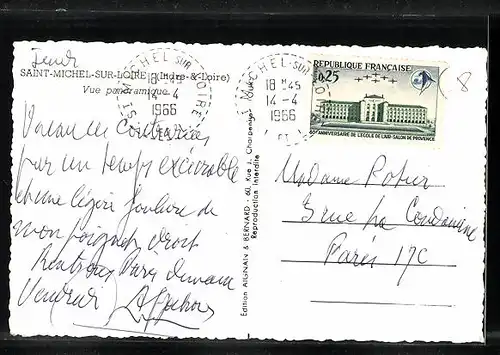 Jeudi
SAINT-MICHEL-SUR-LOIRE (Indre-&-Loire)
Vue panoramique
ST MICHEL SUR LOIRE
18 H45
14-4
1966
ST MICHEL SUR LOIRE
18 H45
14-4
1966
RÉPUBLIQUE FRANÇAISE
0,25
ANNIVERSAIRE DE L'ÉCOLE DE L'AIR-SALON DE PROVENCE
8
Vacances contrariées
par un temps exécrable
et une légère foulure de
mon poignet droit
Rentrons Paris demain
Vendredi
Edition ARSNAN & BERNARD - 60, Rue J. Charpentier, Tours
Reproduction interdite
Madame Potier
3 rue La Condamine
Paris 17e